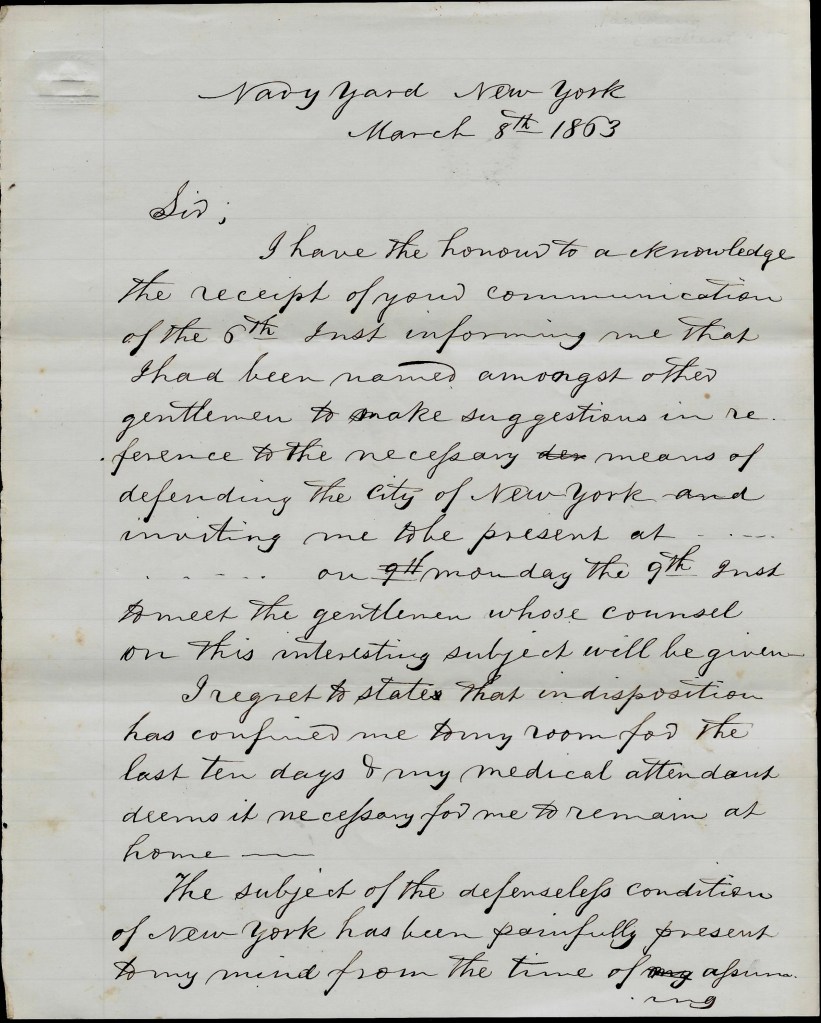 Navy Yard New York
March 8th 1863
Sir;
I have the honour to acknowledge
the receipt of your communication
of the 6th Inst informing me that
I had been named amongst other
gentlemen to make suggestions in re-
ference to the necessary der means of
defending the City of New York and
inviting me to be present at - . - - -
. - - - - . on 9th monday the 9th Inst
to meet the gentlemen whose counsel
on this interesting subject will be given
I regret to state that indisposition
has confined me to my room for the
last ten days & my medical attendant
deems it necessary for me to remain at
home —
The subject of the defenseless condition
of New York has been painfully present
to my mind from the time of my assum-
ing